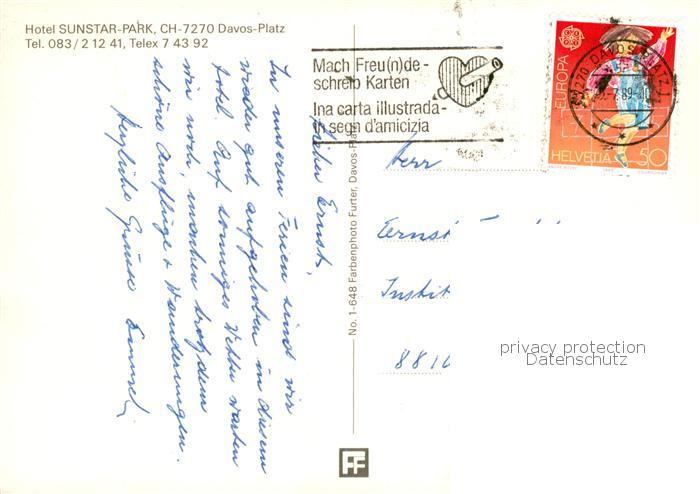 Hotel SUNSTAR-PARK, CH-7270 Davos-Platz
Tel. 083/2 12 41, Telex 7 43 92
Mach Freu(n)de-
schreib Karten
Ina carta illustrada-
in segn d'amicizia
7270 DAVOS PLATZ 1
EUROPA
HELVETIA 50
Lieber Ernst,
In unseren Ferien sind wir
wieder gut aufgehoben in diesem
Hotel. Auf sonniges Wetter warten
wir noch, machen trotzdem
schöne Ausflüge + Wanderungen.
Herzliche Grüsse
No. 1-648 Farbenphoto Furter, Davos-Platz
Herr
Ernst
Instit
8810
privacy protection
Datenschutz
FF